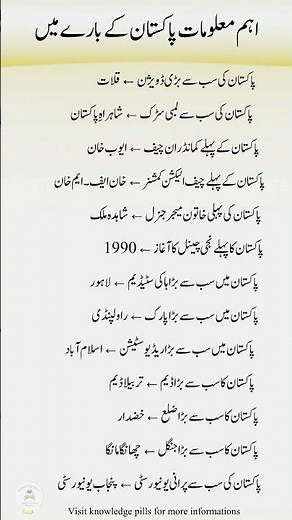 اہم معلومات پاکستان کے بارے میں
پاکستان کی سب سے بڑی ڈویژن ← قلات
پاکستان کی سب سے لمبی سڑک ← شاہراہِ پاکستان
پاکستان کے پہلے کمانڈران چیف ← ایوب خان
پاکستان کے پہلے چیف الیکشن کمشنر ← خان ایف۔ایم خان
پاکستان کی پہلی خاتون میجر جنرل ← شاہدہ ملک
پاکستان کا پہلے نجی چینل کا آغاز ← 1990
پاکستان میں سب سے بڑا ہاکی سٹیڈیم ← لاہور
پاکستان میں سب سے بڑا پارک ← راولپنڈی
پاکستان میں سب سے بڑا ریڈیو سٹیشن ← اسلام آباد
پاکستان کا سب سے بڑا ڈیم ← تربیلا ڈیم
پاکستان کا سب سے بڑا ضلع ← خضدار
پاکستان کا سب سے بڑا جنگل ← چھانگا مانگا
پاکستان کی سب سے پرانی یونیورسٹی ← پنجاب یونیورسٹی
Visit knowledge pills for more informations